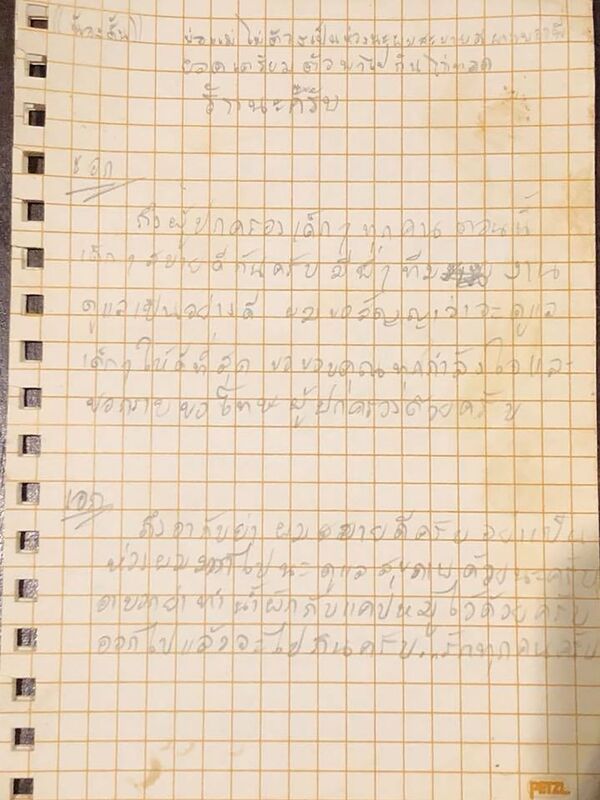 (น้องตั้น) พ่อแม่ไม่ต้องเป็นห่วงนะผมสบายดี
ยอดเตรียมตัวพาไปกินไก่ทอด
ร้านะคัรบ
โค้ชเอก
ถึงผู้ปกครองเด็กๆ ทุกคน ตอนนี้
เด็กๆ สบายดีกันครับ มีพี่ๆ ทีมงาน
ดูแลเป็นอย่างดี ผมขอสัญญาว่าจะดูแล
เด็กๆ ให้ดีที่สุด ขอบคุณทุกกำลังใจและ
ขอกราบขอโทษผู้ปกครองด้วยครับ
เอก
ถึงอากับย่า ผมสบายดีครับ อย่าเป็น
ห่วงผมมากไปนะ ดูแลสุขภาพด้วยนะครับ
อาบอกย่าทำน้ำผักกับแคปหมูไว้ด้วยครับ
ออกไปแล้วจะไปกินครับ..รักทุกคนครับ
PETZL